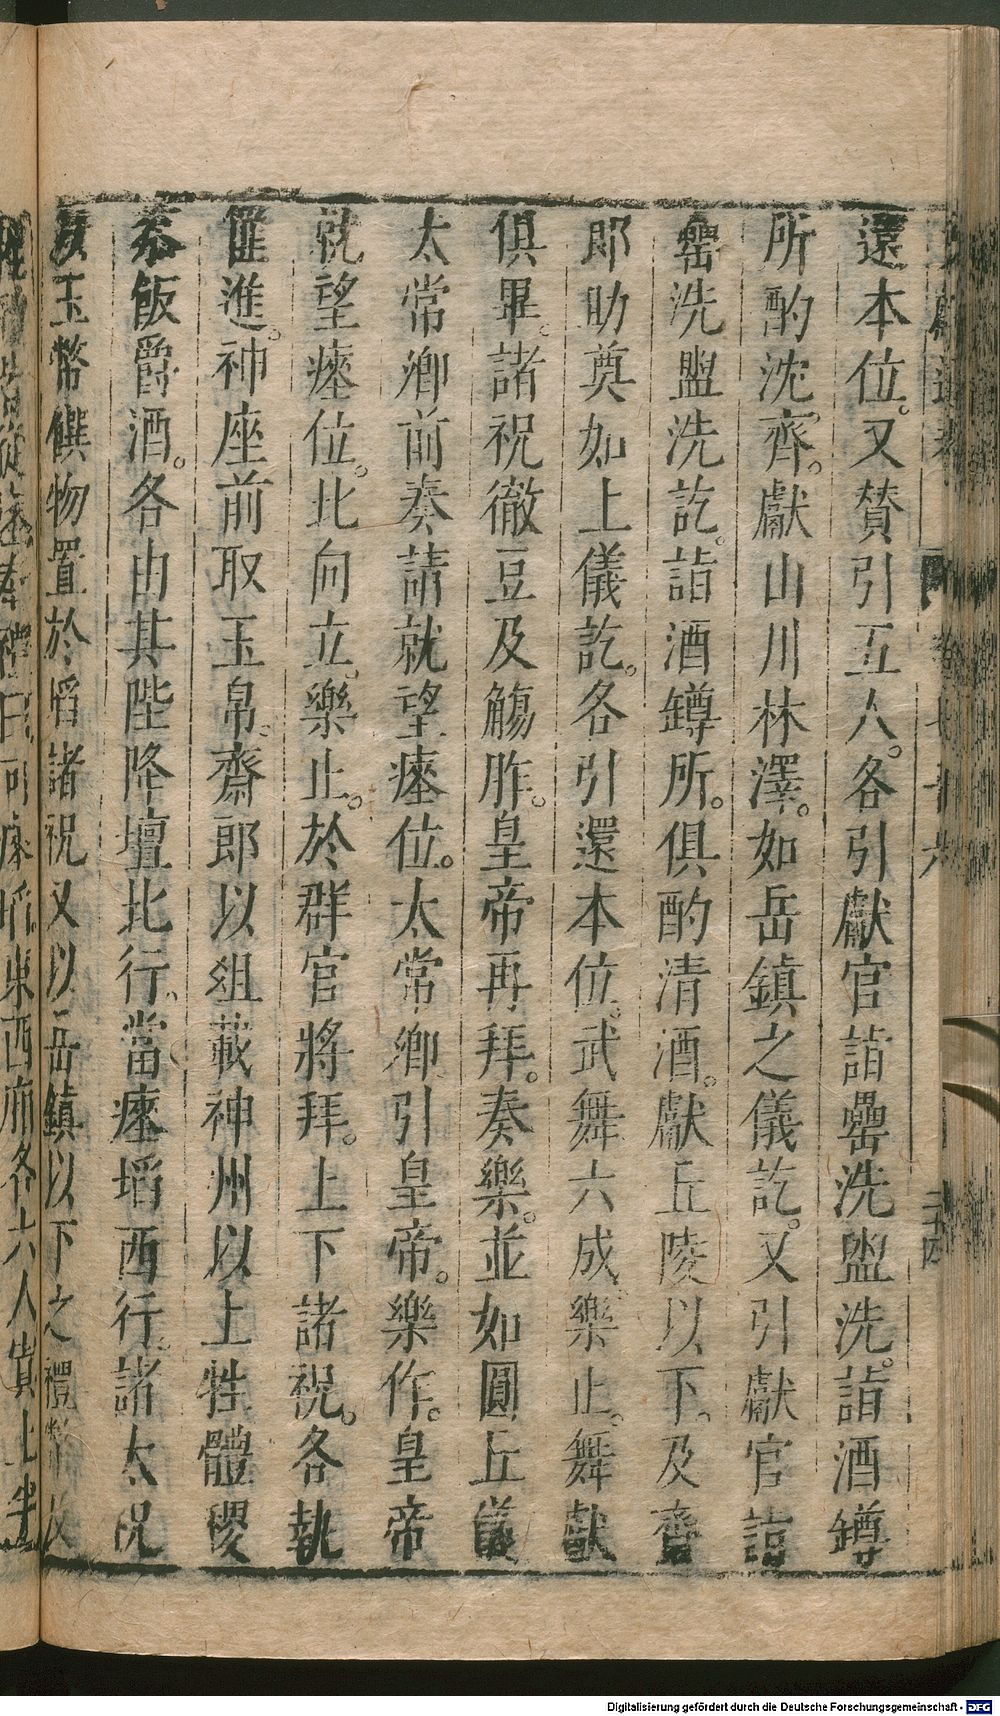 還本位。又賛引五人。各引獻官詣罍洗盥洗。詣酒罇
所酌沈齊。獻山川林澤。如岳鎮之儀訖。又引獻官詣
罍洗盥洗訖。詣酒罇所。俱酌清酒。獻丘陵以下。及齋
郎助奠如上儀訖。各引還本位。武舞六成。樂止。舞獻
俱畢。諸祝徹豆及觴胙。皇帝再拜。奏樂。並如圓丘儀
太常卿前奏請就望瘞位。太常卿引皇帝。樂作。皇帝
就望瘞位。北向立。樂止。於群官將拜。上下諸祝。各執
篚進。神座前取玉帛。齋郎以俎載神州以上牲體稷
黍飯爵酒。各由其陛降壇北行。當瘞埳西行。諸太祝
以玉幣饌物置於埳諸祝又以岳鎮以下之禮幣及
東西廂各六人
卷七十六
二十四
Digitalisierung gefördert durch die Deutsche Forschungsgemeinschaft - DFG